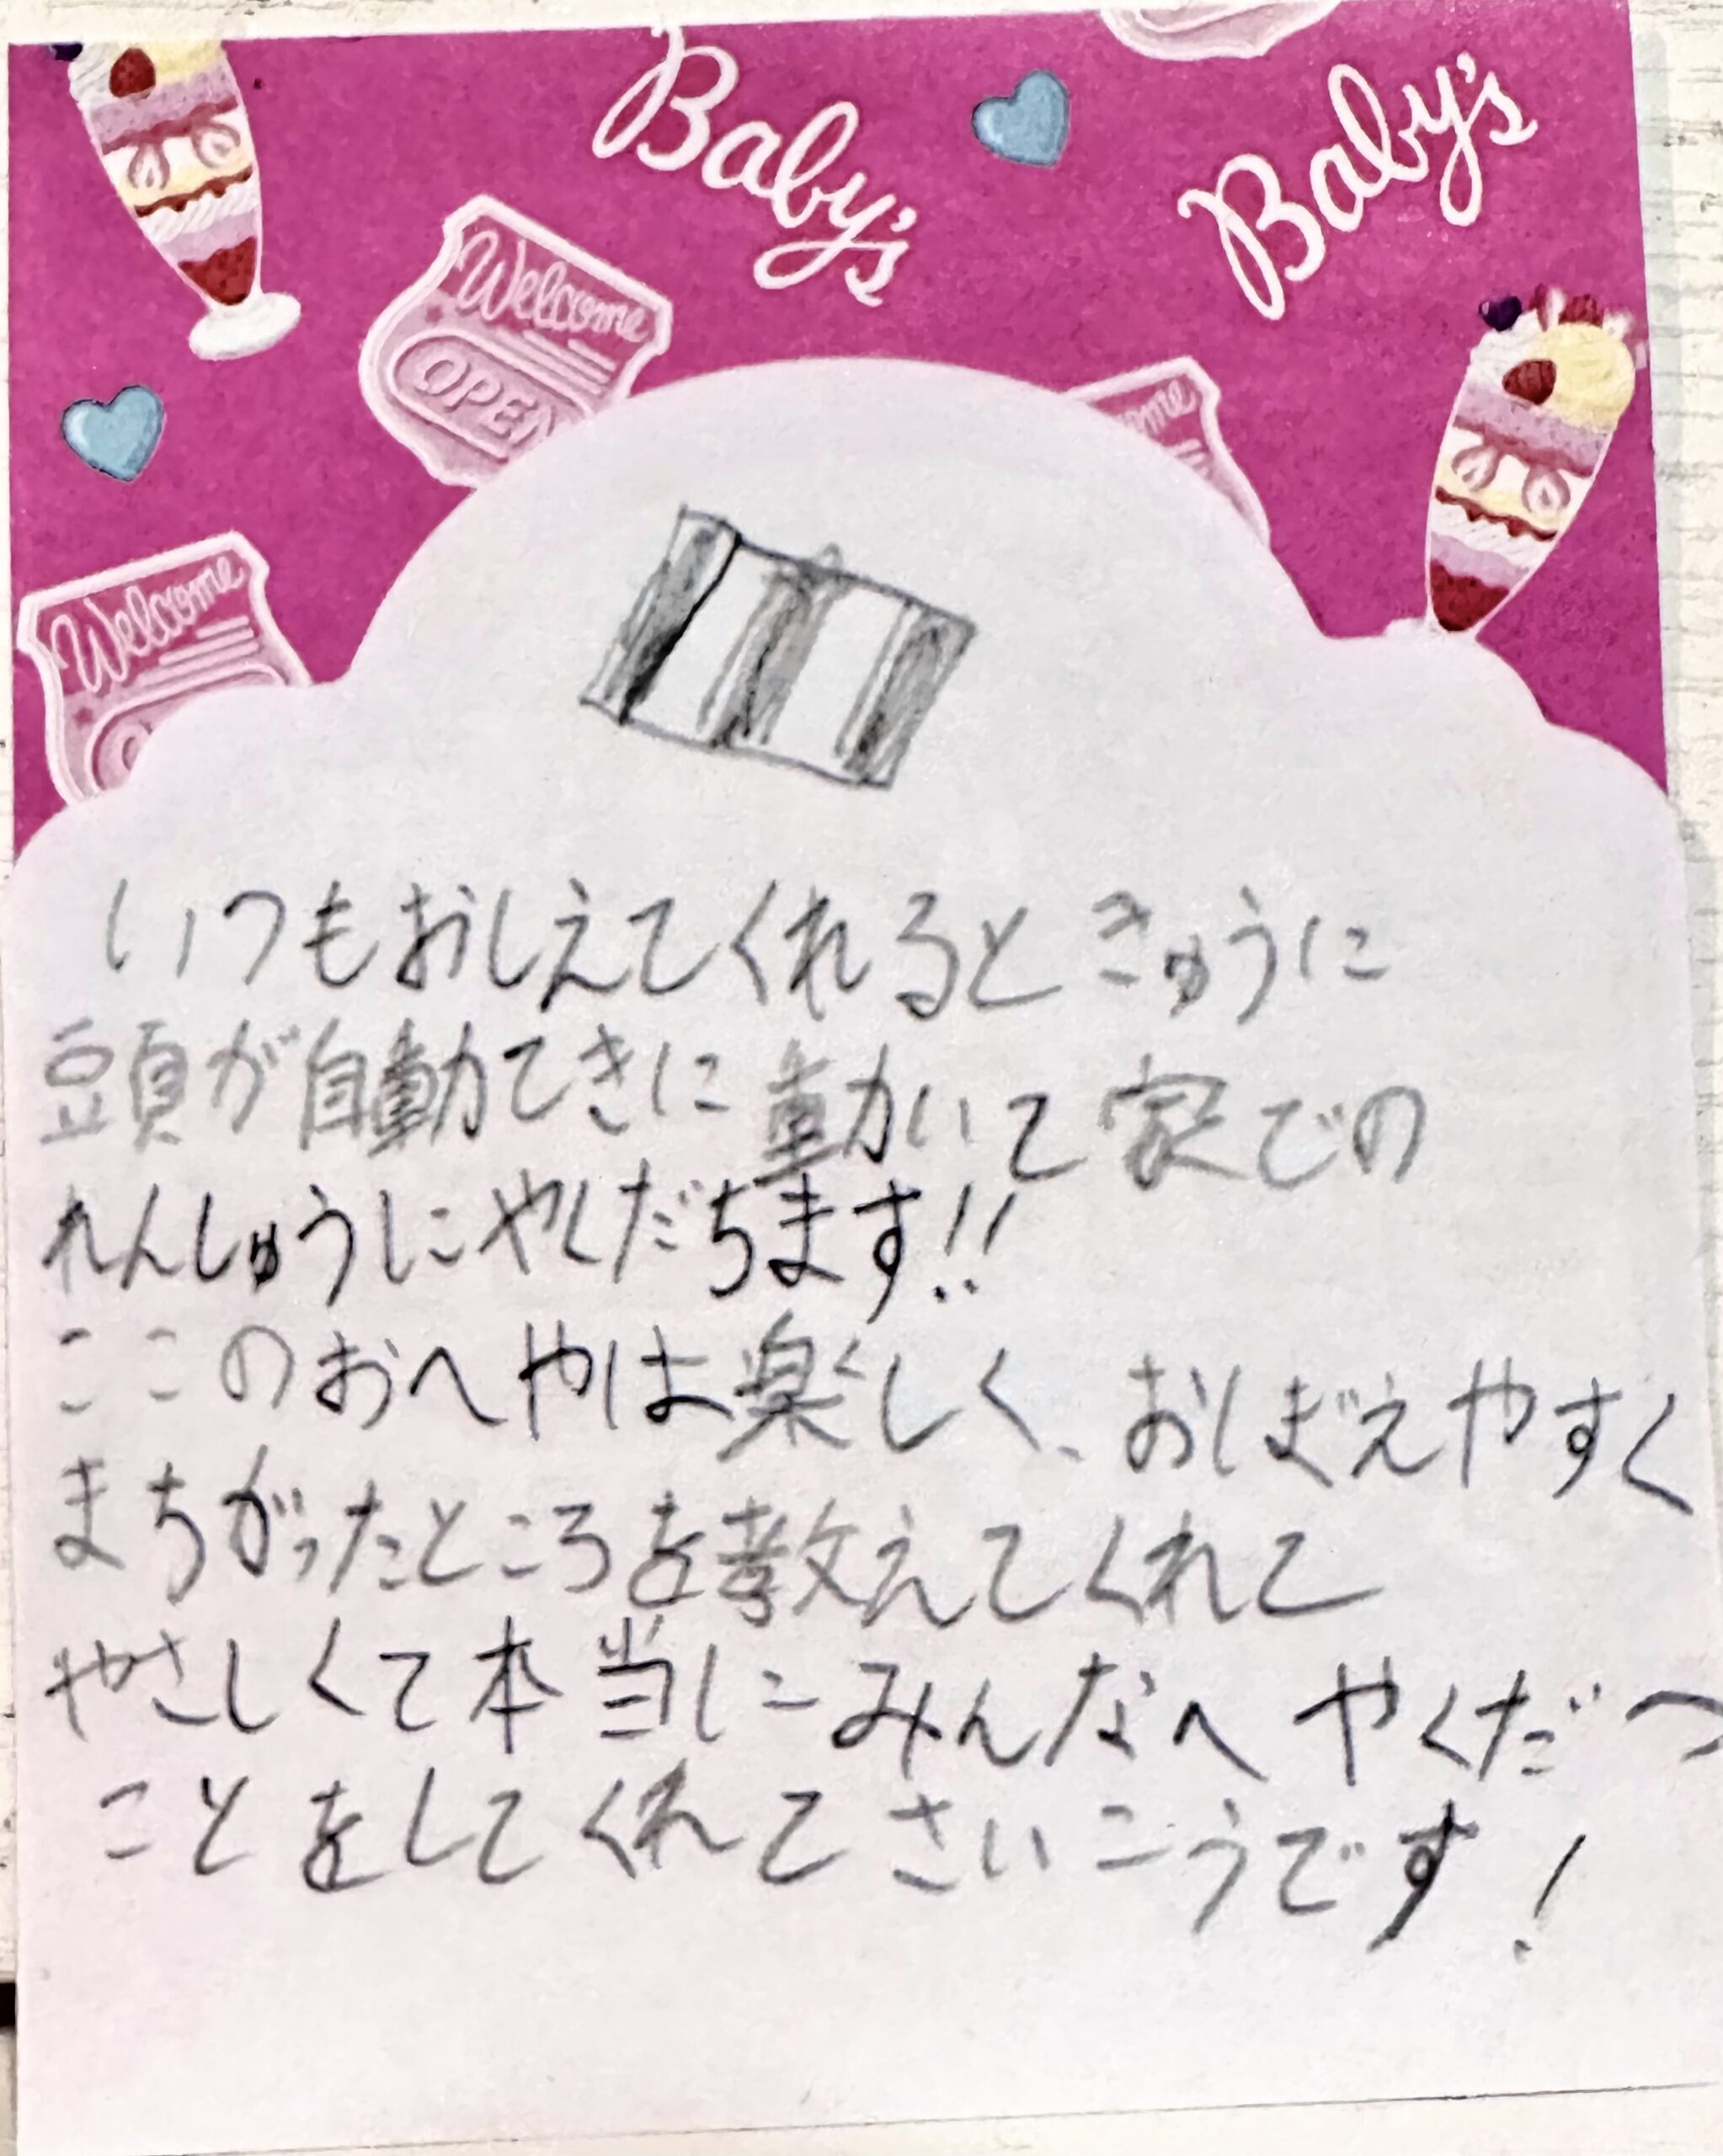 Baby's
Baby's
Welcome
OPEN
Welcome
いつもおしえてくれるときゅうに
頭が自動てきに動いて家での
れんしゅうにやくだちます!!
ここのおへやは楽しく、おぼえやすく
まちがったところを教えてくれて
やさしくて本当にみんなへやくだつ
ことをしてくれてさいこうです!